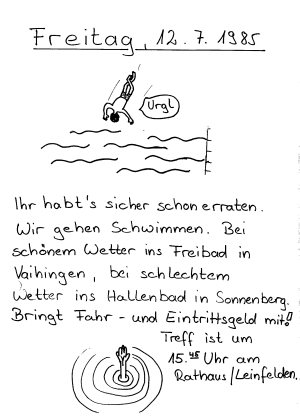 Freitag, 12.7.1985
Urgl
Ihr habt's sicher schon erraten.
Wir gehen Schwimmen. Bei
schönem Wetter ins Freibad in
Vaihingen, bei schlechtem
Wetter ins Hallenbad in Sonnenberg.
Bringt Fahr- und Eintrittsgeld mit!
Treff ist um
15.45 Uhr am
Rathaus/Leinfelden.